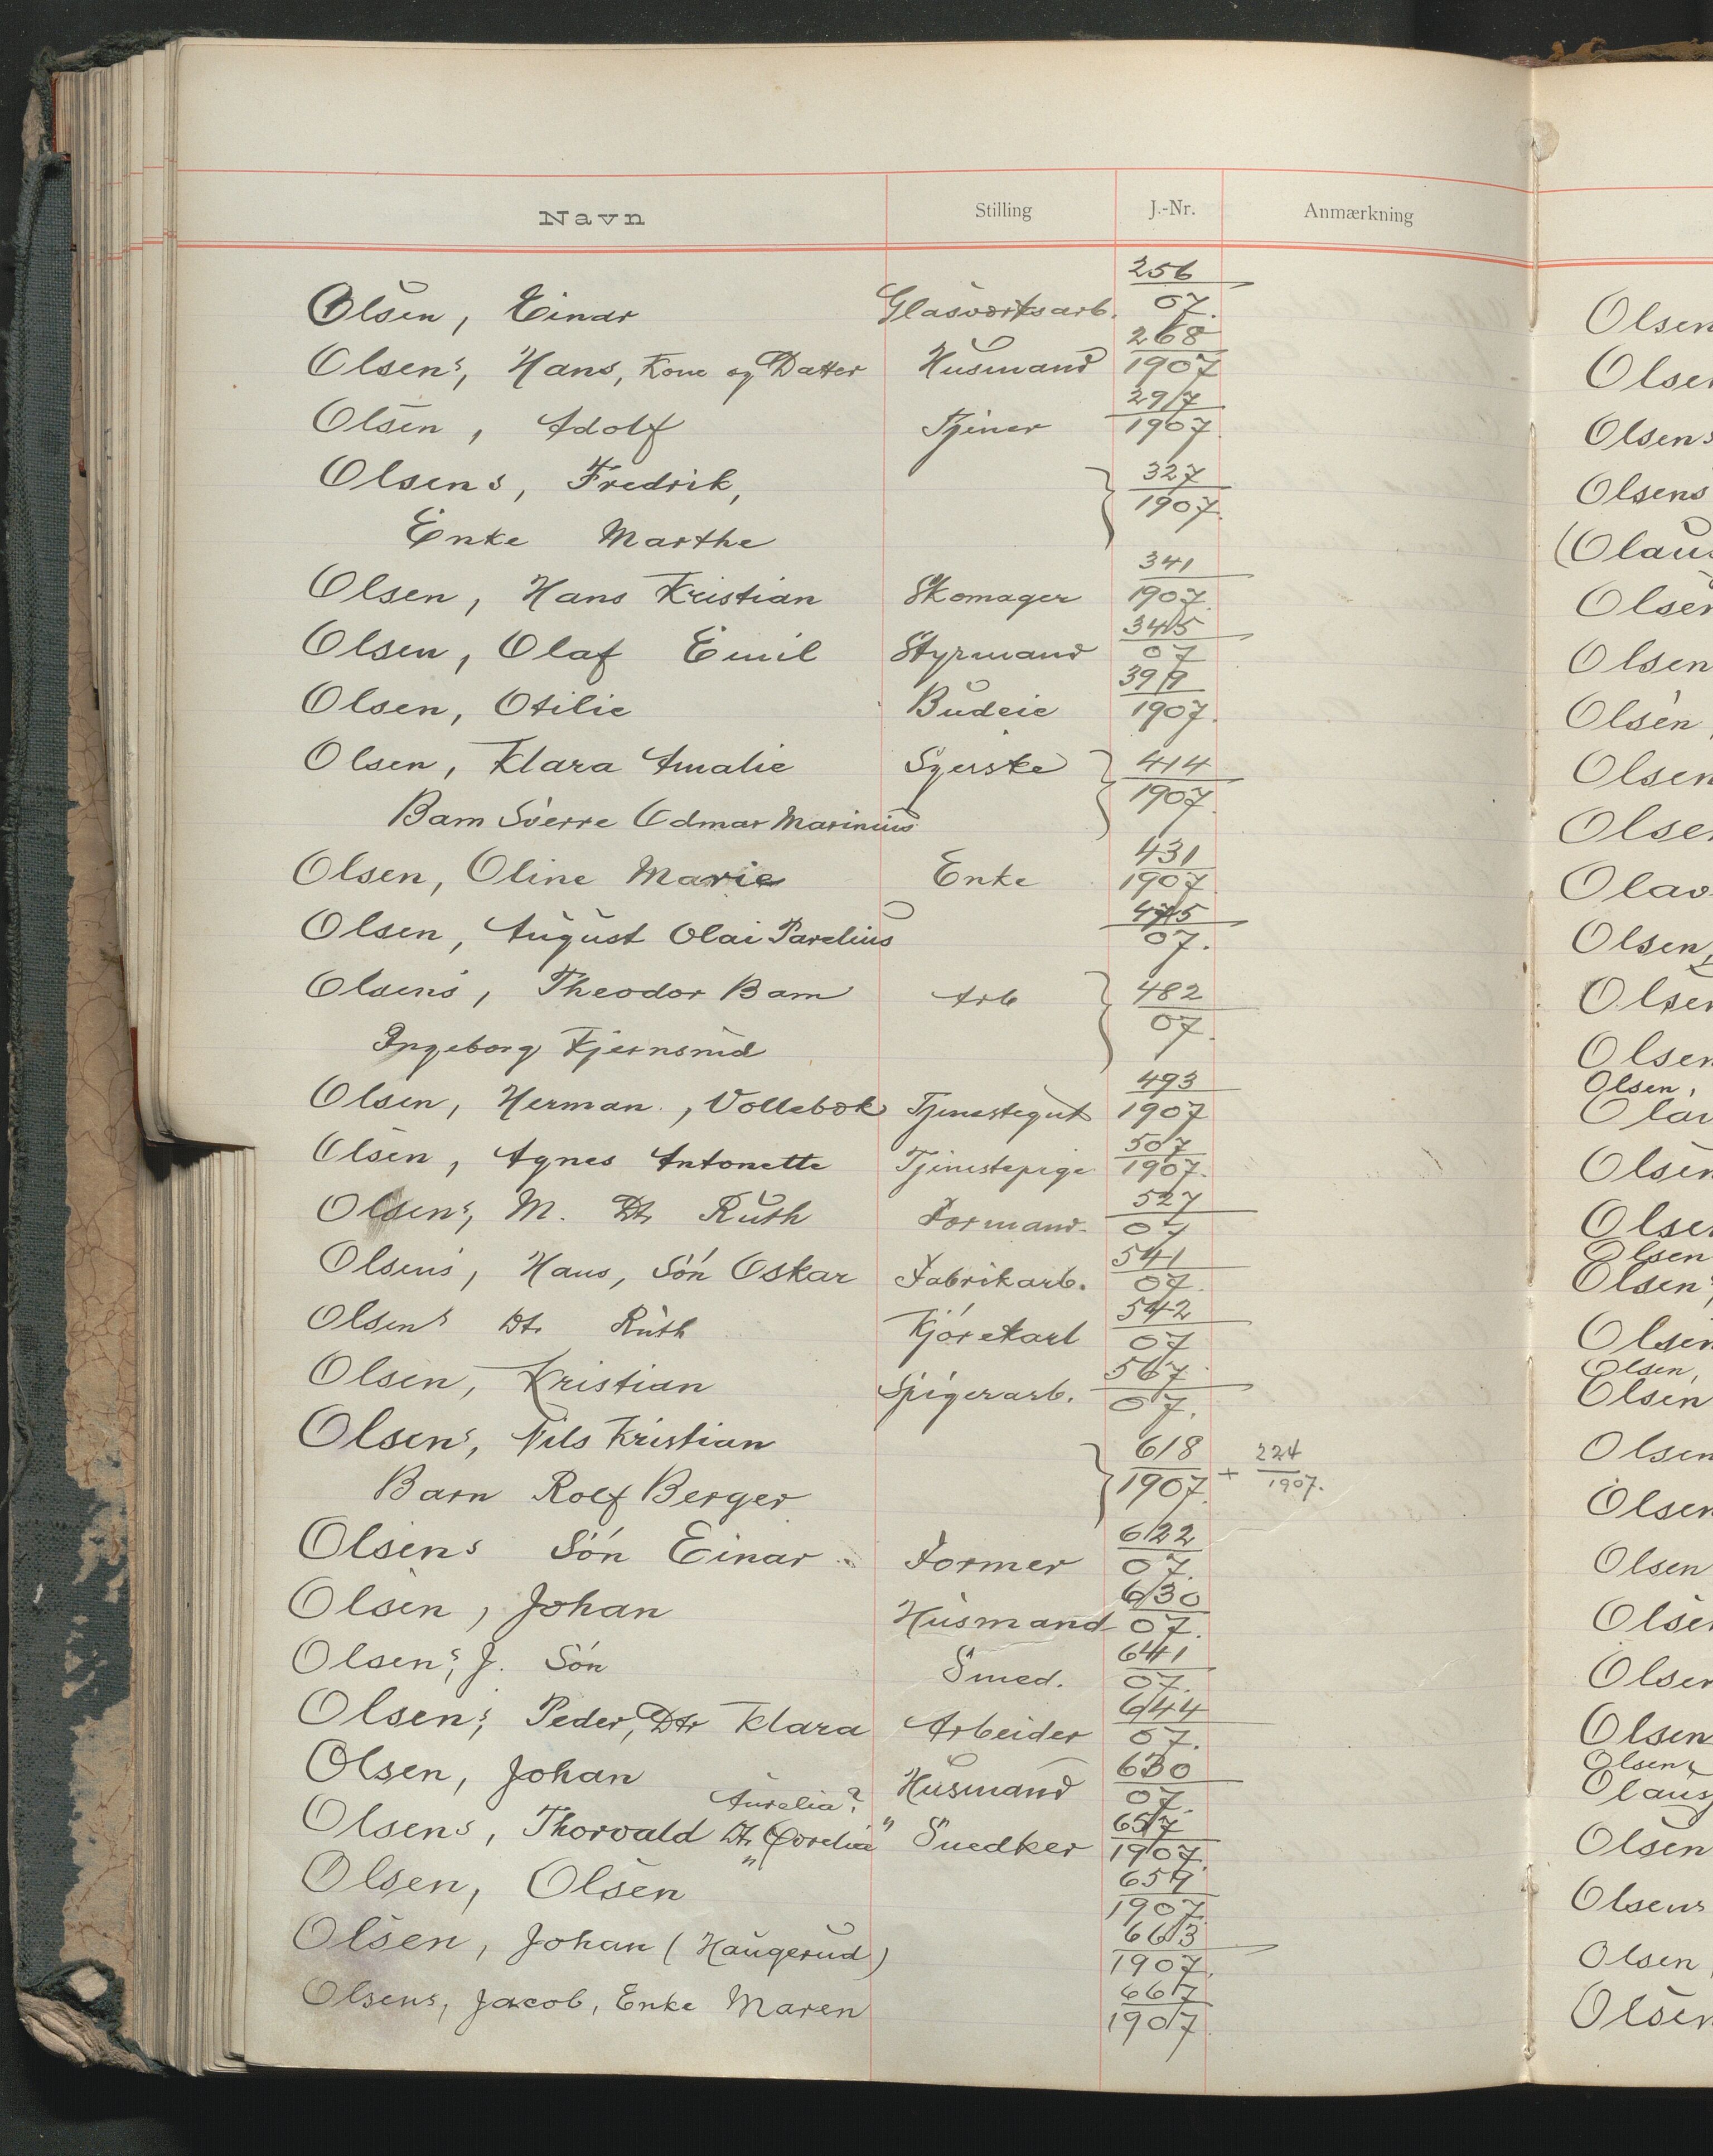 Navn Stilling J.-Nr. Anmærkning
Olsen, Einar Glasværksarb. 256/07.
Olsen's, Hans, Kone og Datter Husmand 268/1907
Olsen, Adolf Tjener 297/1907
Olsens, Fredrik, 327/1907.
Enke Marthe
Olsen, Hans Kristian Skomager 341/1907.
Olsen, Olaf Emil Styrmand 345/07
Olsen, Otilie Budeie 399/1907.
Olsen, Klara Amalie Syerske 414/1907
Barn Sverre Odmar Marinius
Olsen, Oline Marie Enke 431/1907
Olsen, August Olai Parelius 07.
Olsens, Theodor Barn Arb 482/07.
Ingeborg Kjernsmd
Olsen, Herman, Vollebæk Tjenestegut 493/1907
Olsen, Agnes Antonette Tjenestepige 507/1907.
Olsen's, M. Dtr Ruth Formand 527/07
Olsens, Hans, Søn Oskar Fabrikarb. 541/07.
Olsens Dtr Ruth Kjørekarl 542/07
Olsen, Kristian Spigerarb. 567/07.
Olsens, Nils Kristian 618/1907. + 224/1907.
Barn Rolf Berger
Olsens Søn Einar Former 622/07.
Olsen, Johan Husmand 630/07.
Olsen's, J. Søn Smed. 641/07.
Olsen's, Peder, Dtr Klara Arbeider 644/07.
Olsen, Johan Husmand 630/07.
Aurelia?
Olsens, Thorvald Dtr "Qvrelia" Snedker 657/1907.
Olsen, Olsen 659/1907.
Olsen, Johan (Haugerud) 663/1907.
Olsens, Jacob, Enke Maren 667/1907.
Olsen
Olsen
Olsens
Olsens
(Olaus
Olsen
Olsen
Olsen,
Olsen
Olsen
Olav
Olsen,
Olsen
Olsen
Olsen,
Olav
Olsen
Olsen
Olsen
Olsen's,
Olsen
Olsen,
Olsen
Olsen
Olsen
Olsen
Olsen
Olsen
Olsen
Olsens
Olaus
Olsen
Olsens
Olsen,
Olsen